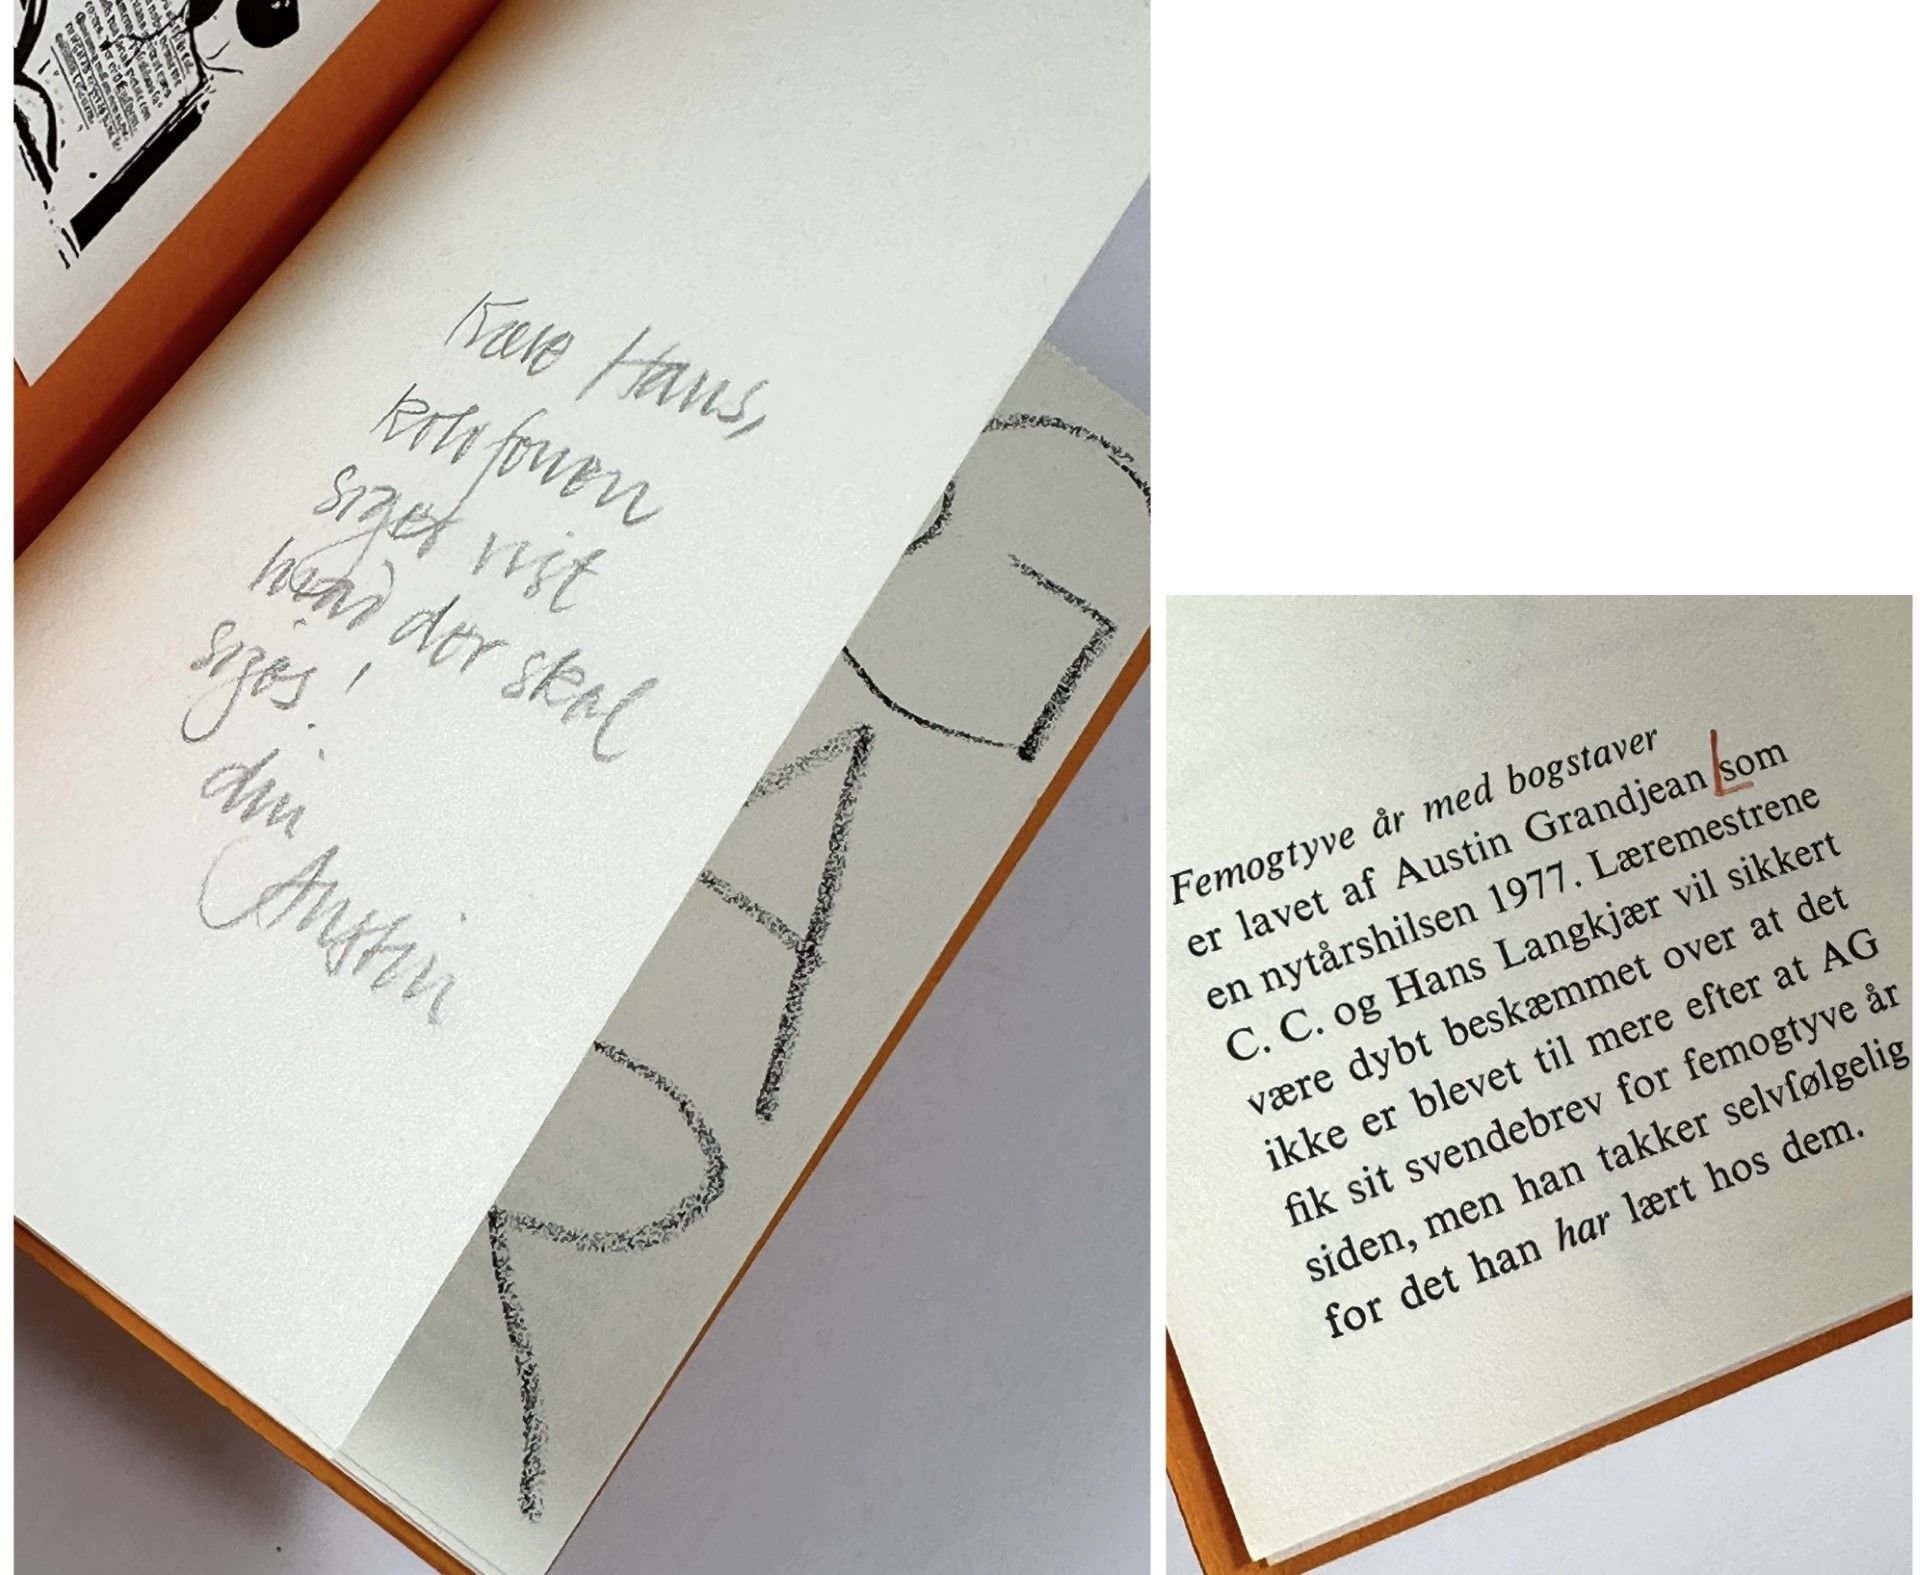 Kære Hans,
kolofonen
siger vist
hvad der skal
siges!
din
Austin
GAP
Femogtyve år med bogstaver
er lavet af Austin Grandjean som
en nytårshilsen 1977. Læremestrene
C. C. og Hans Langkjær vil sikkert
være dybt beskæmmet over at det
ikke er blevet til mere efter at AG
fik sit svendebrev for femogtyve år
siden, men han takker selvfølgelig
for det han har lært hos dem.